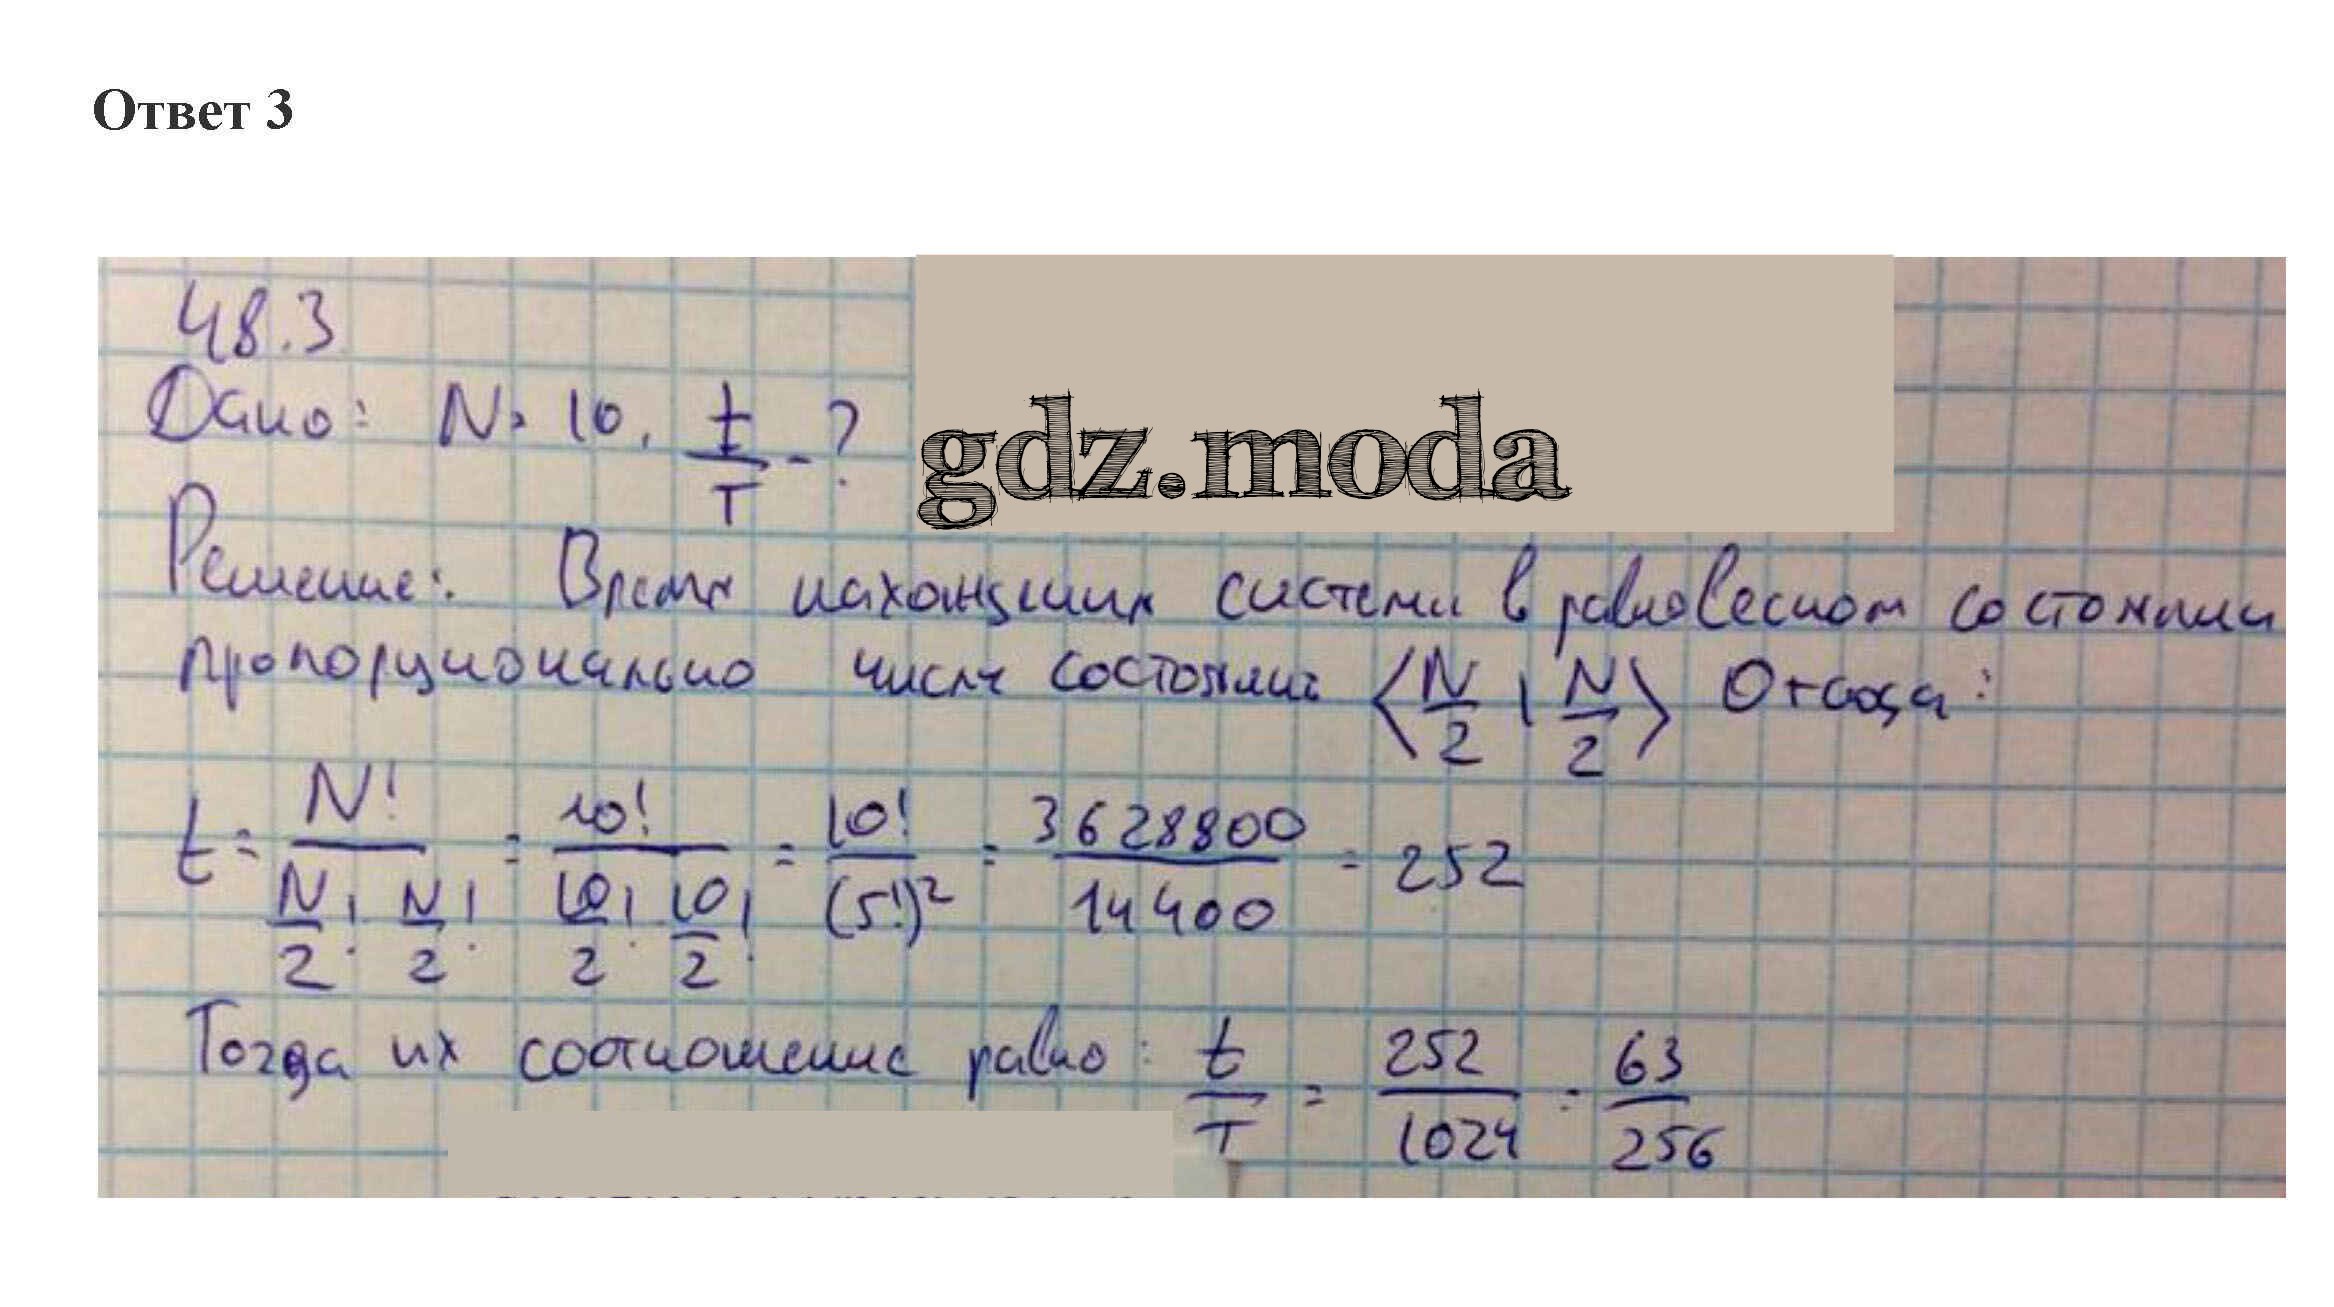 Ответ 3
48.3
Дано: N = 10, t/T - ?
gdz.moda
Решение: Время нахождения системы в равновесном состоянии
пропорционально числу состояний ⟨N/2 | N/2⟩ Отсюда:
t = N! / (N/2! N/2!) = 10! / (10/2! 10/2!) = 10! / (5!)² = 3628800 / 14400 = 252
Тогда их соотношение равно: t/T = 252/1024 = 63/256